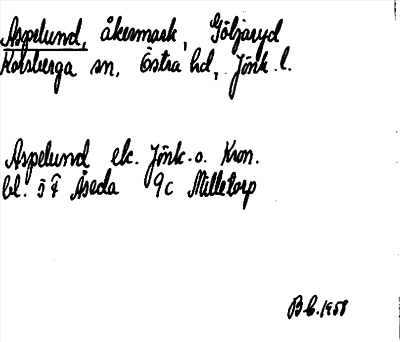 Aspelund, åkermark, Göljaryd
Korsberga sn, Östra hd, Jönk. l.
Aspelund ek. Jönk. o. Kron.
bl. 5 F Åseda 9c Milletorp
B.b. 1958